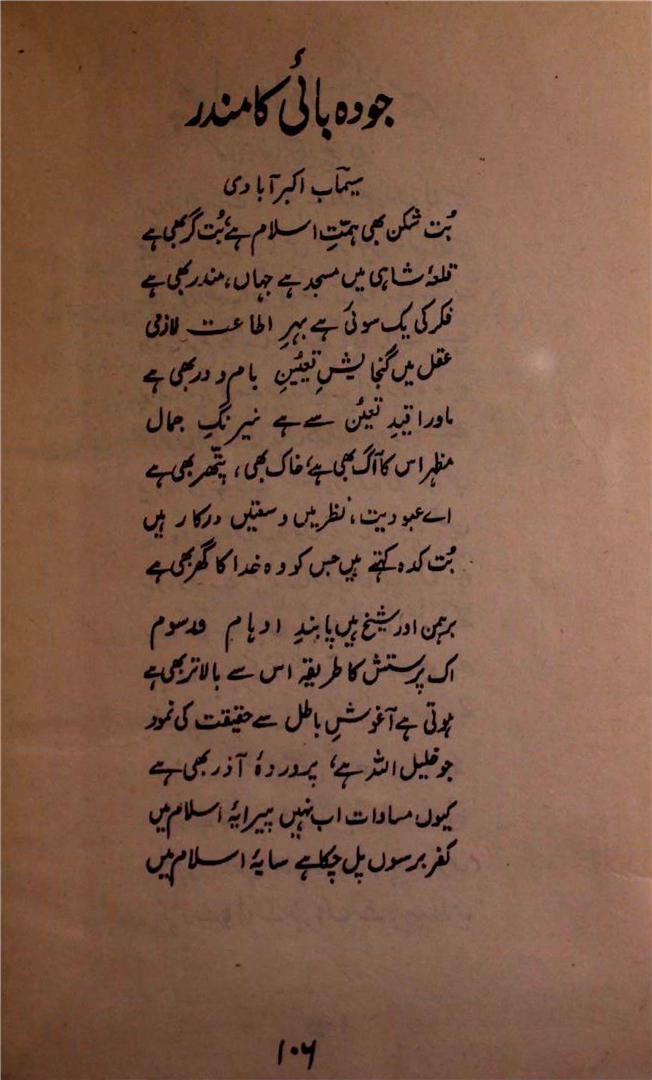 جودہ بائی کا مندر
سیمآب اکبرآبادی
بُت شکن بھی ہمّتِ اسلام ہے، بُت گر بھی ہے
قلعۂ شاہی میں مسجد ہے جہاں، مندر بھی ہے
فکر کی یک سوئی ہے بہرِ اطاعت لازمی
عقل میں گنجایشِ تعیّنِ بام و در بھی ہے
ماورا قیدِ تعیّن سے ہے نیرنگِ جمال
مظہر اس کا آگ بھی ہے، خاک بھی، پتّھر بھی ہے
اے عبودیت، نظر میں وسعتیں درکار ہیں
بُت کدہ کہتے ہیں جس کو وہ خدا کا گھر بھی ہے
برہمن اور شیخ ہیں پابندِ اوہام و رسوم
اک پرستش کا طریقہ اس سے بالاتر بھی ہے
ہوتی ہے آغوشِ باطل سے حقیقت کی نمود
جو خلیل اللہ ہے، پروردۂ آذر بھی ہے
کیوں مساوات اب نہیں پیرایۂ اسلام میں
کفر برسوں پل چکا ہے سایۂ اسلام میں
۱۰۶